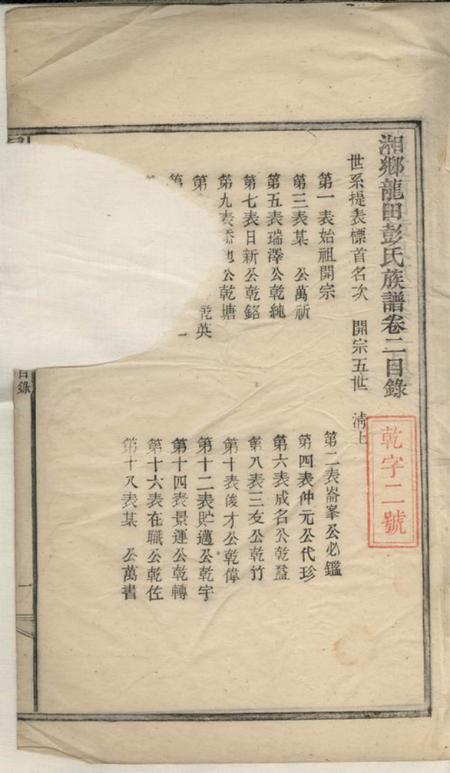 湘鄉龍田彭氏族譜卷二目錄
乾字二號
世系提表標首名次 開宗五世 清上
第一表始祖開宗
第二表崙峯公必鑑
第三表某 公萬祈
第四表仲元公代珍
第五表瑞澤公乾純
第六表成名公乾益
第七表日新公乾銘
第八表三友公乾竹
第九表 公乾塘
第十表俊才公乾偉
第 乾英
第十二表貯邁公乾宇
第
第十四表景運公乾轉
第十六表在職公乾佐
第十八表某 公萬書
目錄
一